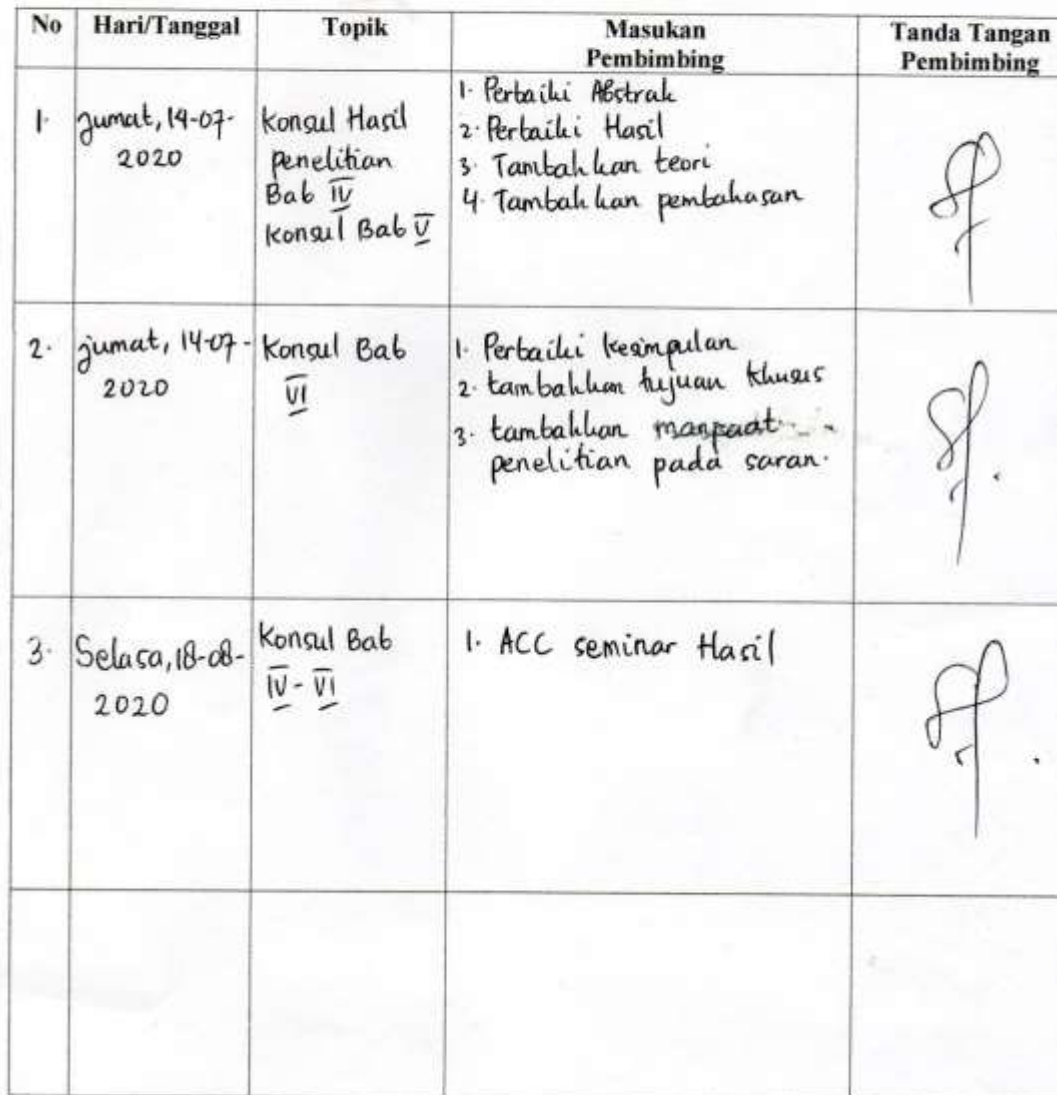 No Hari/Tanggal Topik Masukan Pembimbing Tanda Tangan Pembimbing
1. Jumat, 14-07-2020
Konsul Hasil
penelitian
Bab IV
Konsul Bab V
1. Perbaiki Abstrak
2. Perbaiki Hasil
3. Tambahkan teori
4. Tambahkan pembahasan
2. jumat, 14-07-2020
Konsul Bab
VI
1. Perbaiki kesimpulan
2. tambahkan tujuan khusus
3. tambahkan manpaat
penelitian pada saran.
3. Selasa, 18-08-2020
Konsul Bab
IV - VI
1. ACC seminar Hasil